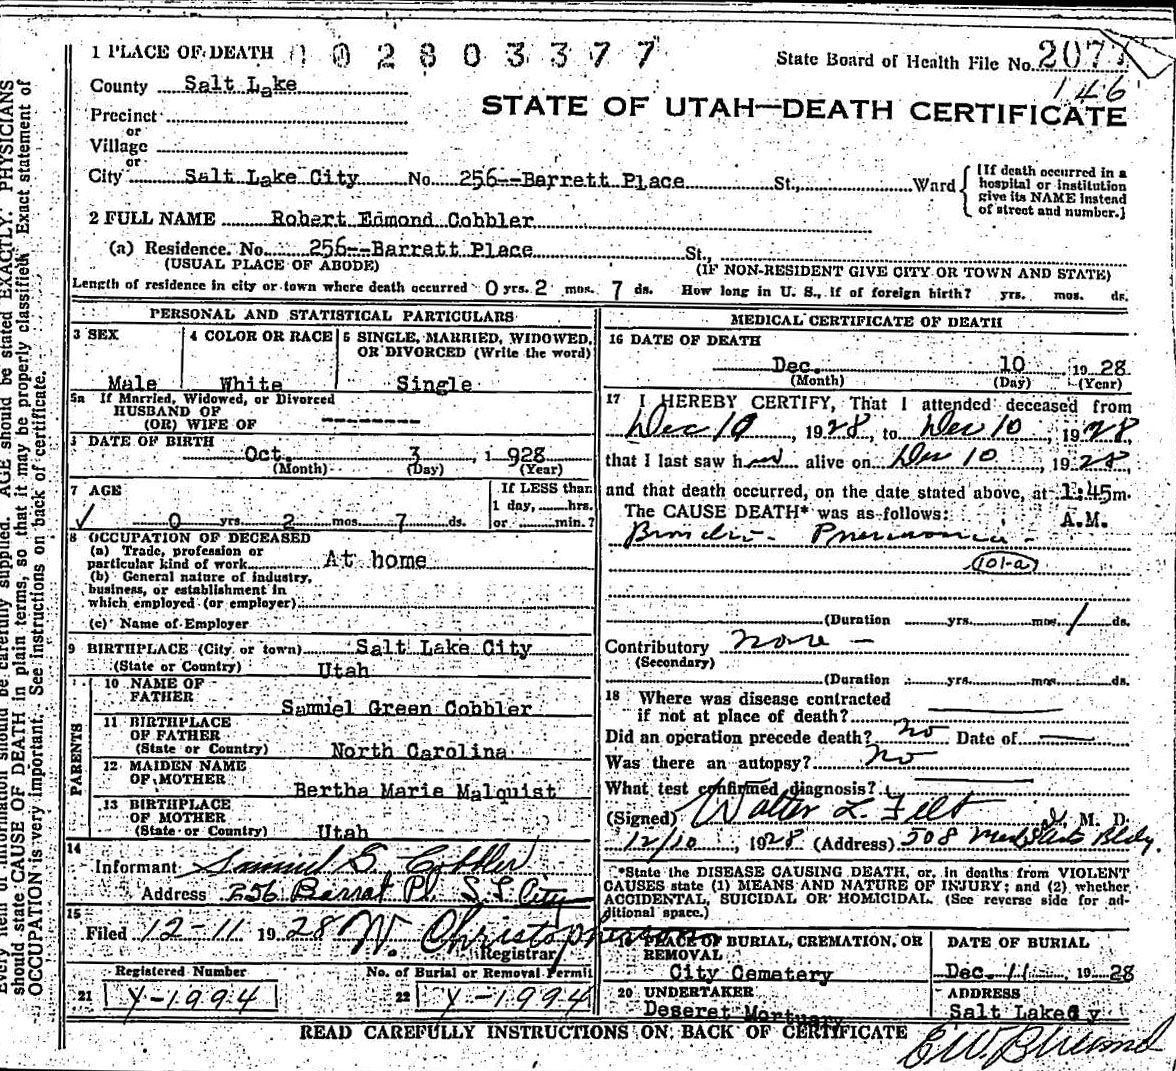 1 PLACE OF DEATH 0 0 2 8 0 3 3 7 7
State Board of Health File No. 2077
146
County Salt Lake
STATE OF UTAH—DEATH CERTIFICATE
Precinct
or
Village
or
City Salt Lake City No. 256--Barrett Place St., Ward
[If death occurred in a
hospital or institution
give its NAME instead
of street and number.]
2 FULL NAME Robert Edmond Cobbler
(a) Residence. No. 256--Barrett Place St.,
(USUAL PLACE OF ABODE) (IF NON-RESIDENT GIVE CITY OR TOWN AND STATE)
Length of residence in city or town where death occurred 0 yrs. 2 mos. 7 ds. How long in U. S., if of foreign birth? yrs. mos. ds.
PERSONAL AND STATISTICAL PARTICULARS
3 SEX
Male
4 COLOR OR RACE
White
5 SINGLE, MARRIED, WIDOWED,
OR DIVORCED (Write the word)
Single
5a If Married, Widowed, or Divorced
HUSBAND OF
(OR) WIFE OF ---------
DATE OF BIRTH
Oct. 3, 1928
(Month) (Day) (Year)
7 AGE
If LESS than
1 day, hrs.
or min.?
✓ 0 yrs. 2 mos. 7 ds.
8 OCCUPATION OF DECEASED
(a) Trade, profession or
particular kind of work At home
(b) General nature of industry,
business, or establishment in
which employed (or employer)
(c) Name of Employer
9 BIRTHPLACE (City or town) Salt Lake City
(State or Country) Utah
PARENTS
10 NAME OF
FATHER
Samiel Green Cobbler
11 BIRTHPLACE
OF FATHER
(State or Country) North Carolina
12 MAIDEN NAME
OF MOTHER
Bertha Marie Malquist
13 BIRTHPLACE
OF MOTHER
(State or Country) Utah
14
Informant Samuel G. Cobbler
Address 256 Barrat Pl. S. L. City
15
Filed 12-11 1928 W. Christopherson
Registrar
Registered Number
21 Y-1994
No. of Burial or Removal Permit
22 Y-1994
MEDICAL CERTIFICATE OF DEATH
16 DATE OF DEATH
Dec. 10 1928
(Month) (Day) (Year)
17 I HEREBY CERTIFY, That I attended deceased from
Dec 10, 1928, to Dec 10, 1928
that I last saw h alive on Dec 10, 1928
and that death occurred, on the date stated above, at 1:45m.
The CAUSE DEATH* was as follows: A.M.
Broncho- Pneumonia-
(101-a)
(Duration yrs. mos. 1 ds.
Contributory none -
(Secondary)
(Duration yrs. mos. ds.
18 Where was disease contracted
if not at place of death?
Did an operation precede death? no Date of
Was there an autopsy? no
What test confirmed diagnosis?
(Signed) Walter L. Felt, M. D.
12/10, 1928 (Address) 508 Bldg.
*State the DISEASE CAUSING DEATH, or, in deaths from VIOLENT
CAUSES state (1) MEANS AND NATURE OF INJURY; and (2) whether
ACCIDENTAL, SUICIDAL OR HOMICIDAL. (See reverse side for ad-
ditional space.)
PLACE OF BURIAL, CREMATION, OR
REMOVAL
City Cemetery
DATE OF BURIAL
Dec. 11 1928
20 UNDERTAKER
Deseret Mortuary
ADDRESS
Salt Lake
READ CAREFULLY INSTRUCTIONS ON BACK OF CERTIFICATE
should be carefully supplied. AGE should be stated EXACTLY. PHYSICIANS
should state CAUSE OF DEATH in plain terms, so that it may be properly classified. Exact statement of
OCCUPATION is very important. See instructions on back of certificate.